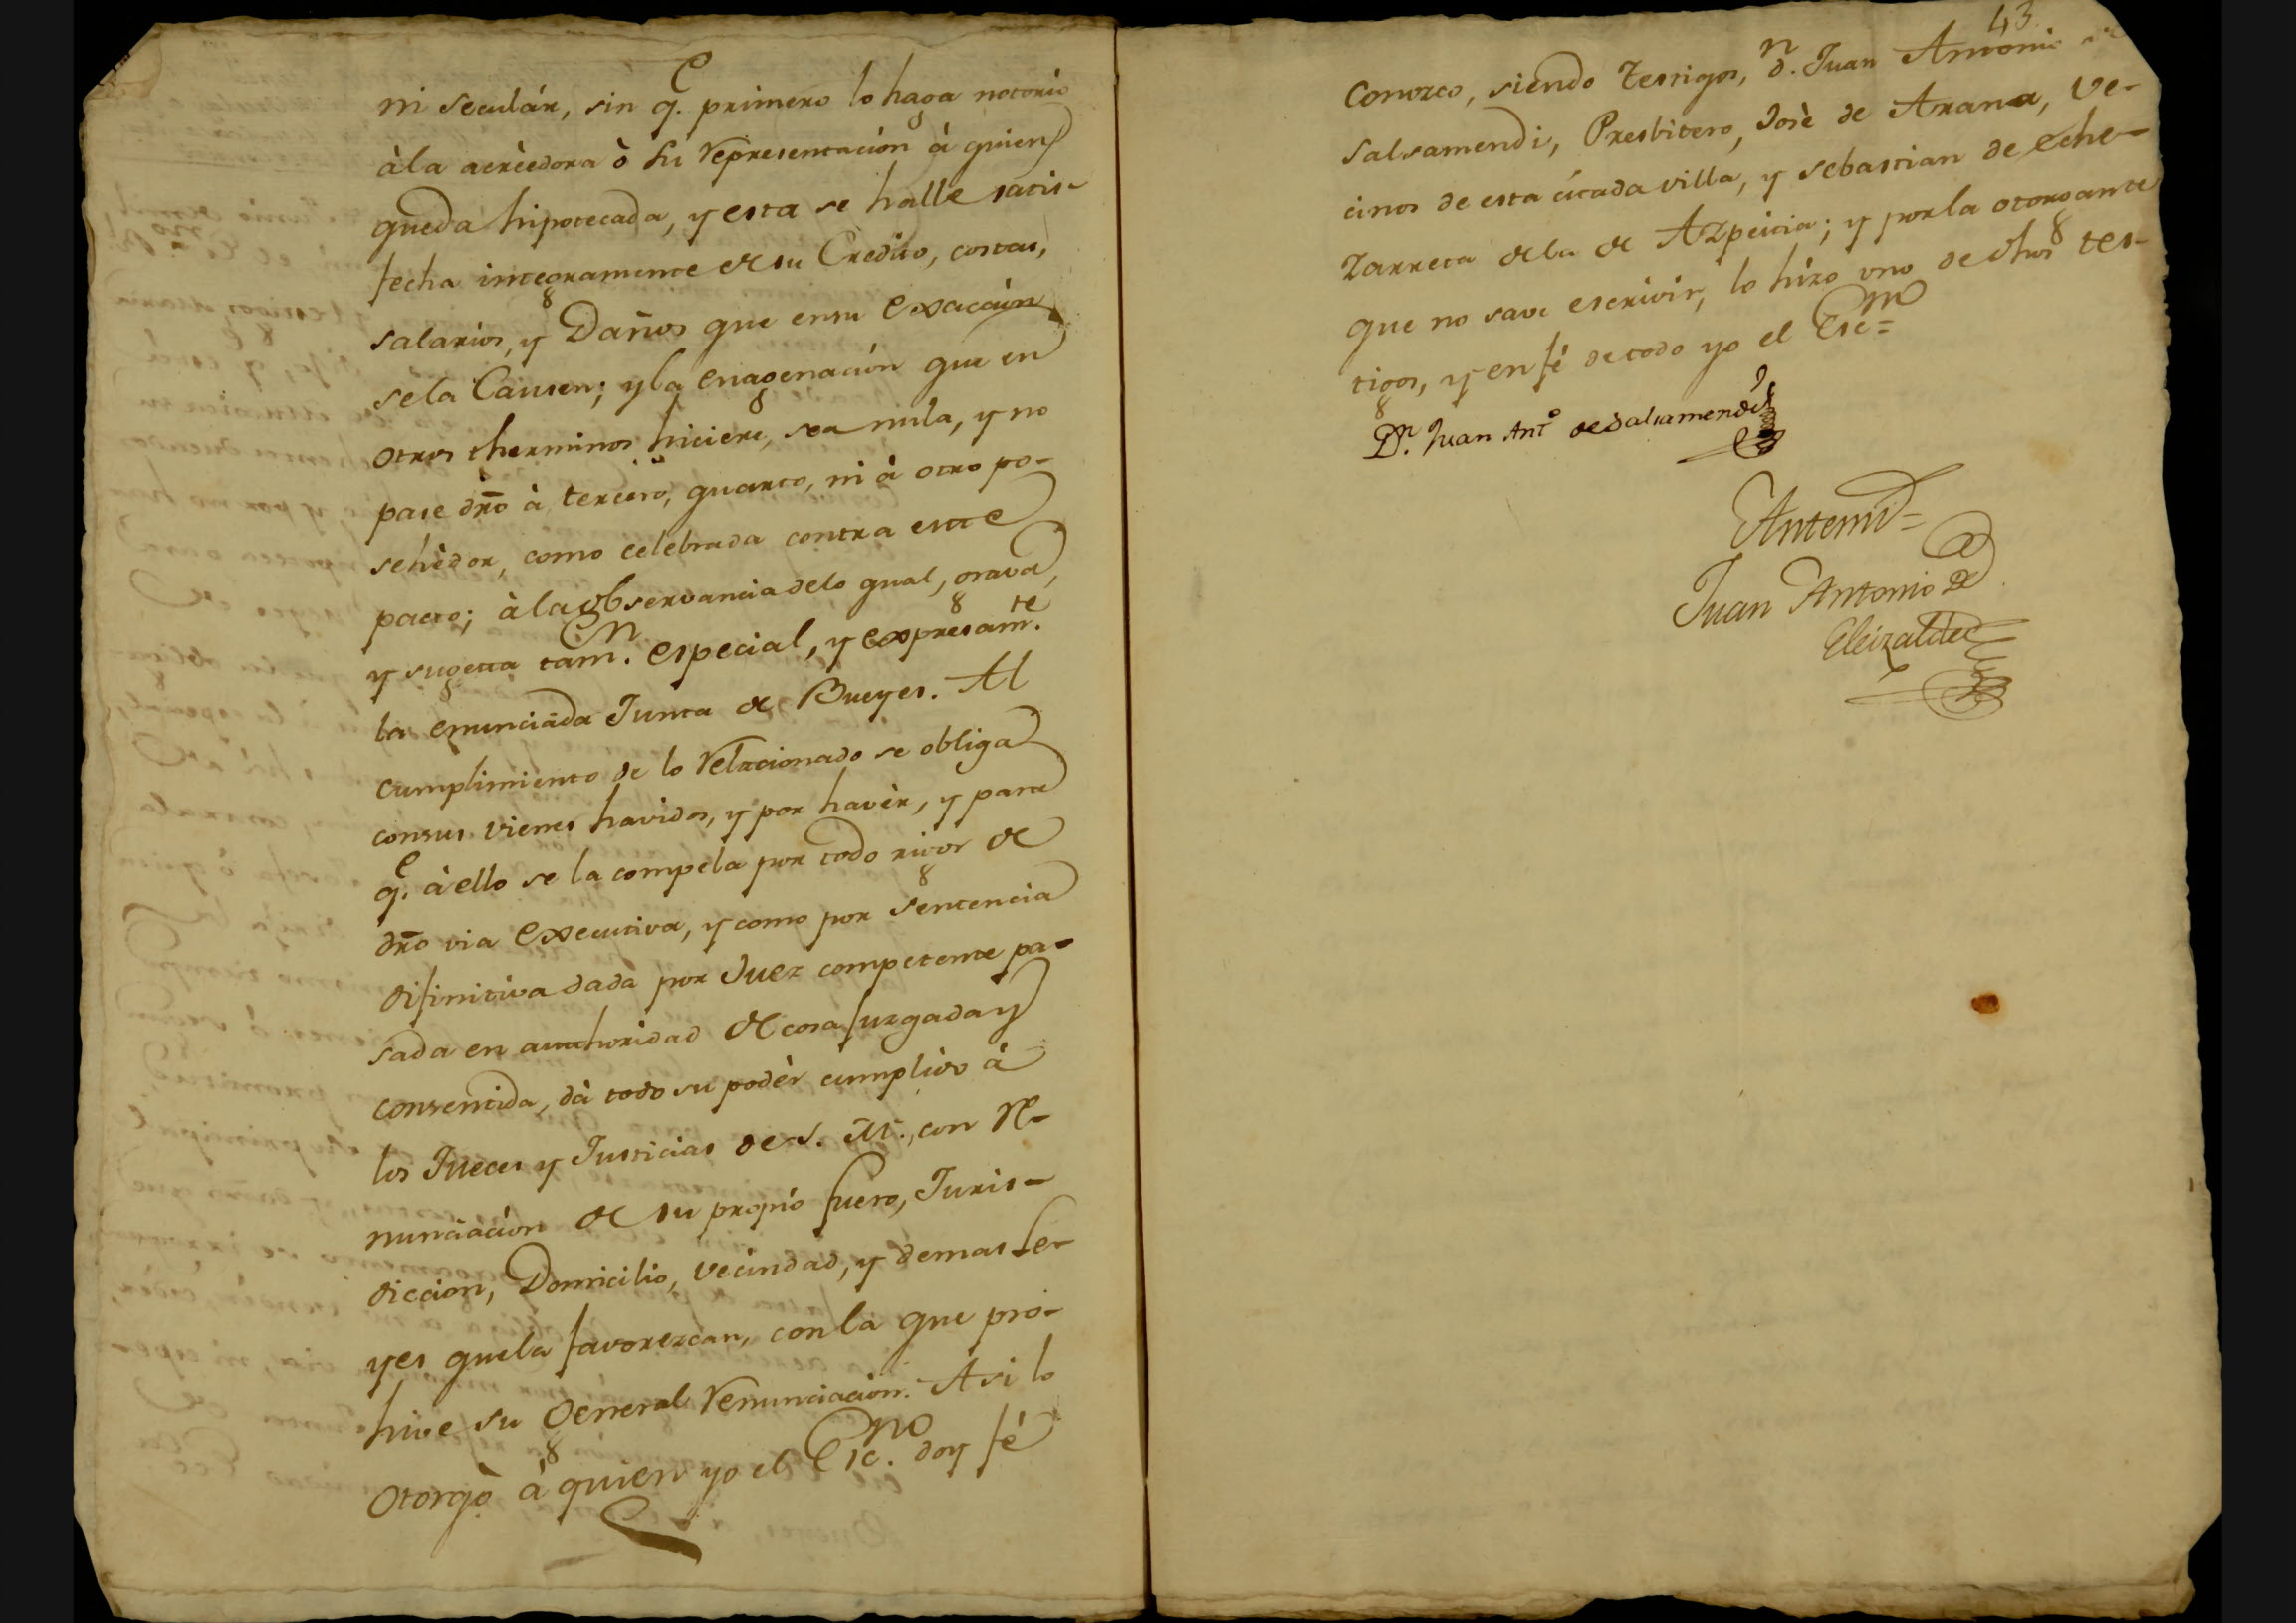 ni seculár, sin q.e primero lo haga notorio
àla acrèedora ò su representación à quien
queda hipotecada, y esta se halle satis-
fecha integramente de su Credito, costas,
salarios, y Daños que en su exacción
se la Causen; y la enagenación que en
otros therminos hiciere, sea nula, y no
pase dr̃o à tercero, quarto, ni à otro po-
sehèdor, como celebrada contra este
pacto; à la observancia delo qual, grava,
y sugetta tam.n especial, y expresam.te
la enunciada Junta de Bueyes. Al
cumplimiento de lo relacionado se obliga
consus vienes havidos, y por havèr, y para
q.e à ello se la compela por todo rigor de
dr̃o via executiva, y como por sentencia
difinitiva dada por Juez competente pa-
sada en authoridad de cosa juzgada y
consentida, dà todo su podèr cumplido à
los Jueces y Justicias de S. M., con re-
nunciación de su propio fuero, Juris-
diccion, Domicilio, vecindad, y demas le-
yes que la favorezcan, con la que pro-
hive su General renunciacion. Asi lo
Otorgò à quien yo el Esc.no doy fé
43
Conozco, siendo testigos, d.n Juan Antonio de
Salsamendi, Presbitero, Josè de Arana, ve-
cinos de esta citada villa, y Sebastian de Eche-
zarreta dela de Azpeitia; y por la otorgante
que no save escrivir, lo hizo uno de dhos tes-
tigos, y en fé de todo yo el Esc.no =
D.n Juan Ant.o de Salsamendi
Antemi =
Juan Antonio de
Eleizalde